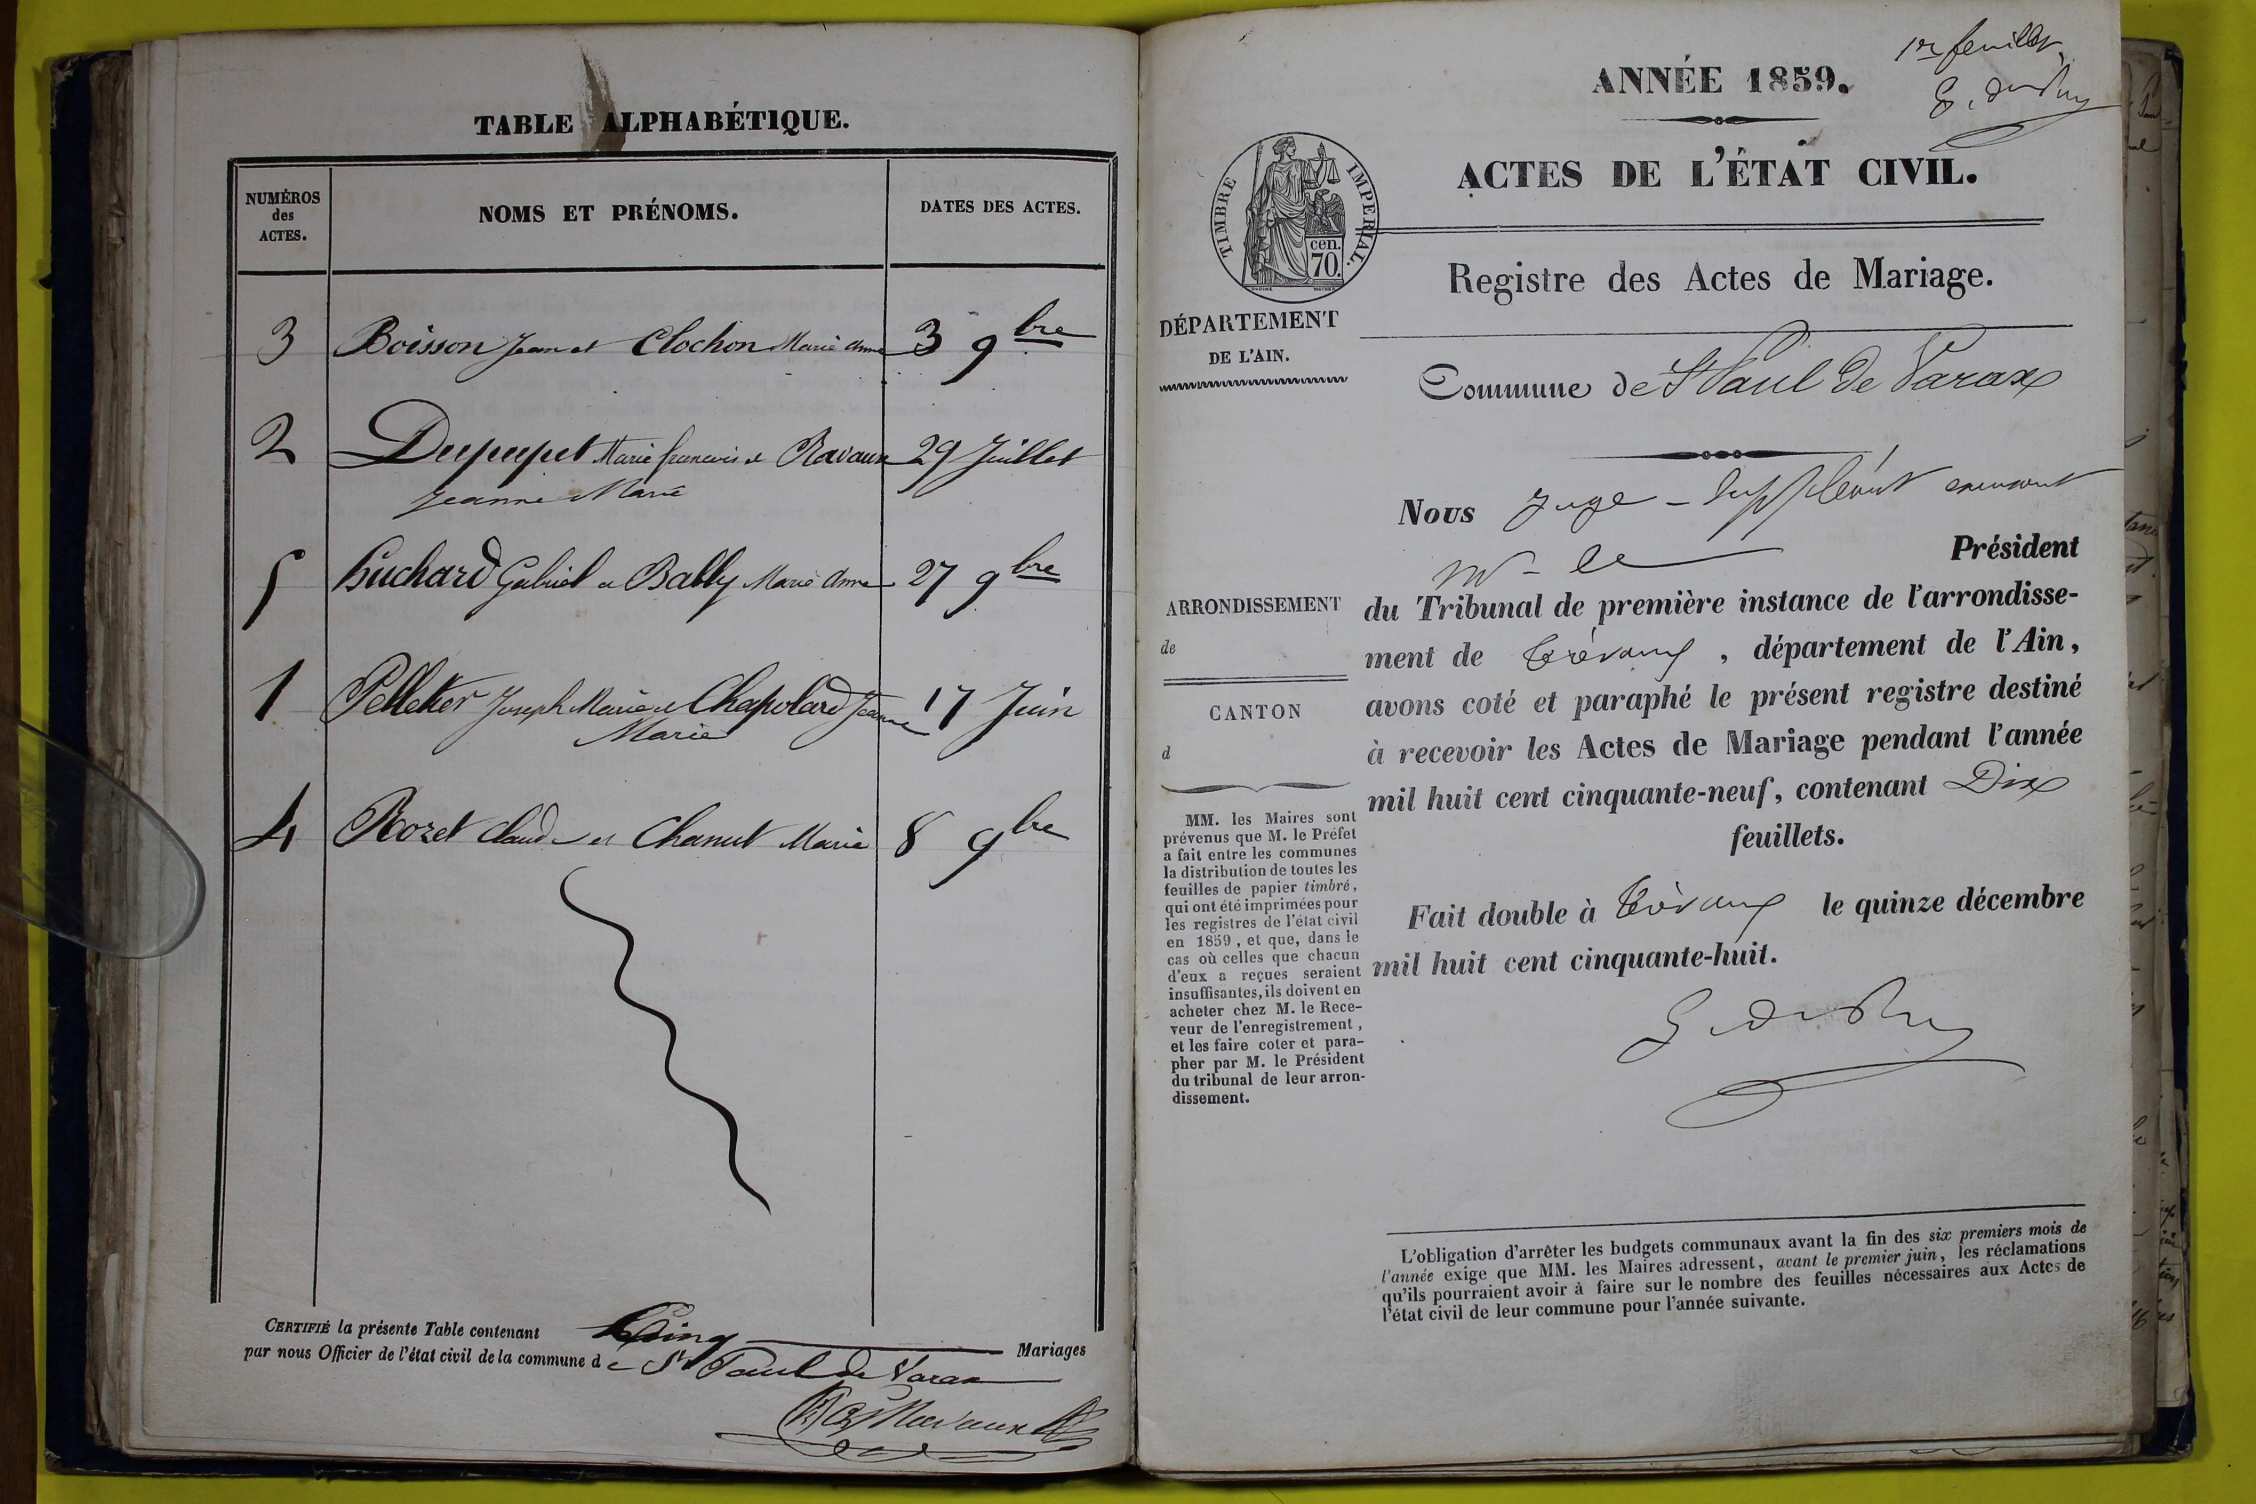 TABLE ALPHABÉTIQUE.
NUMÉROS
des
ACTES.
NOMS ET PRÉNOMS.
DATES DES ACTES.
3 Boisson Jean et Clochon Marie Anne 3 9bre
2 Dupupet Marie françois et Ravaux 29 Juillet
Jeanne Marie
5 huchard Gabriel et Bally Marie Anne 27 9bre
1 Pelletier Joseph Marie et Chapolard Jeanne 17 Juin
Marie
4 Rozet Claude et Chanut Marie 8 9bre
CERTIFIÉ la présente Table contenant Cinq Mariages
par nous Officier de l'état civil de la commune de St Paul de Varax
1er feuillet
ANNÉE 1859.
ACTES DE L'ÉTAT CIVIL.
TIMBRE IMPÉRIAL.
cen.
70.
Registre des Actes de Mariage.
DÉPARTEMENT
DE L'AIN.
Commune de St Paul de Varax
Nous Juge-suppléant
Mr le Président
du Tribunal de première instance de l'arrondisse-
ment de Trévoux, département de l'Ain,
avons coté et paraphé le présent registre destiné
à recevoir les Actes de Mariage pendant l'année
mil huit cent cinquante-neuf, contenant Dix
feuillets.
Fait double à Trévoux le quinze décembre
mil huit cent cinquante-huit.
ARRONDISSEMENT
de
CANTON
d
MM. les Maires sont
prévenus que M. le Préfet
a fait entre les communes
la distribution de toutes les
feuilles de papier timbré,
qui ont été imprimées pour
les registres de l'état civil
en 1859, et que, dans le
cas où celles que chacun
d'eux a reçues seraient
insuffisantes, ils doivent en
acheter chez M. le Rece-
veur de l'enregistrement,
et les faire coter et para-
pher par M. le Président
du tribunal de leur arron-
dissement.
L'obligation d'arrêter les budgets communaux avant la fin des six premiers mois de
l'année exige que MM. les Maires adressent, avant le premier juin, les réclamations
qu'ils pourraient avoir à faire sur le nombre des feuilles nécessaires aux Actes de
l'état civil de leur commune pour l'année suivante.